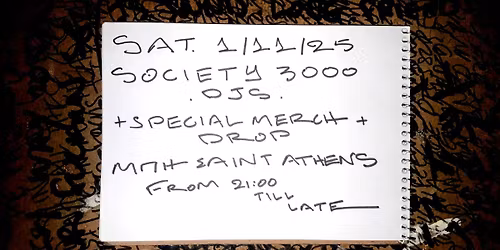 SAT. 1/11/25
SOCIETY 3000
.DJS.
+SPECIAL MERCH +
DROP
SAINT ATHENS
FROM 21:00
TILL
LATE